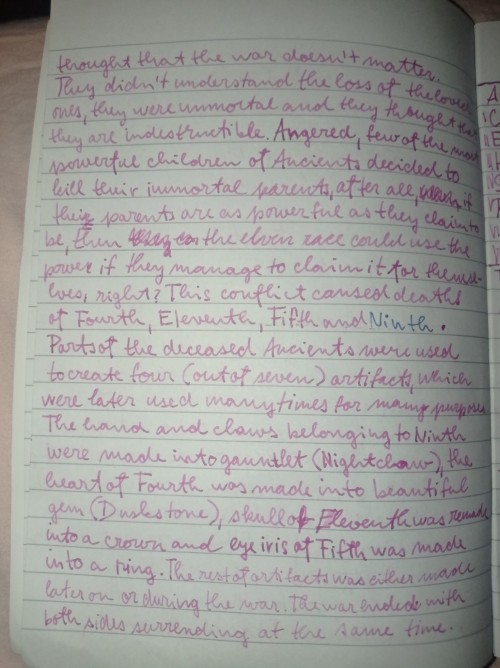 thought that the war doesn't matter.
They didn't understand the loss of the loved
ones, they were immortal and they thought that
they are indestructible. Angered, few of the most
powerful children of Ancients decided to
kill their immortal parents, after all, if
their parents are as powerful as they claim to
be, then the elven race could use the
power if they manage to claim it for themse-
lves, right? This conflict caused deaths
of Fourth, Eleventh, Fifth and Ninth.
Parts of the deceased Ancients were used
to create four (out of seven) artifacts, which
were later used many times for many purposes.
The hand and claws belonging to Ninth
were made into gauntlet (Nightclaw), the
heart of Fourth was made into beautiful
gem (Duskstone), skull of Eleventh was remade
into a crown and eye iris of Fifth was made
into a ring. The rest of artifacts was either made
later on or during the war. The war ended with
both sides surrending at the same time.